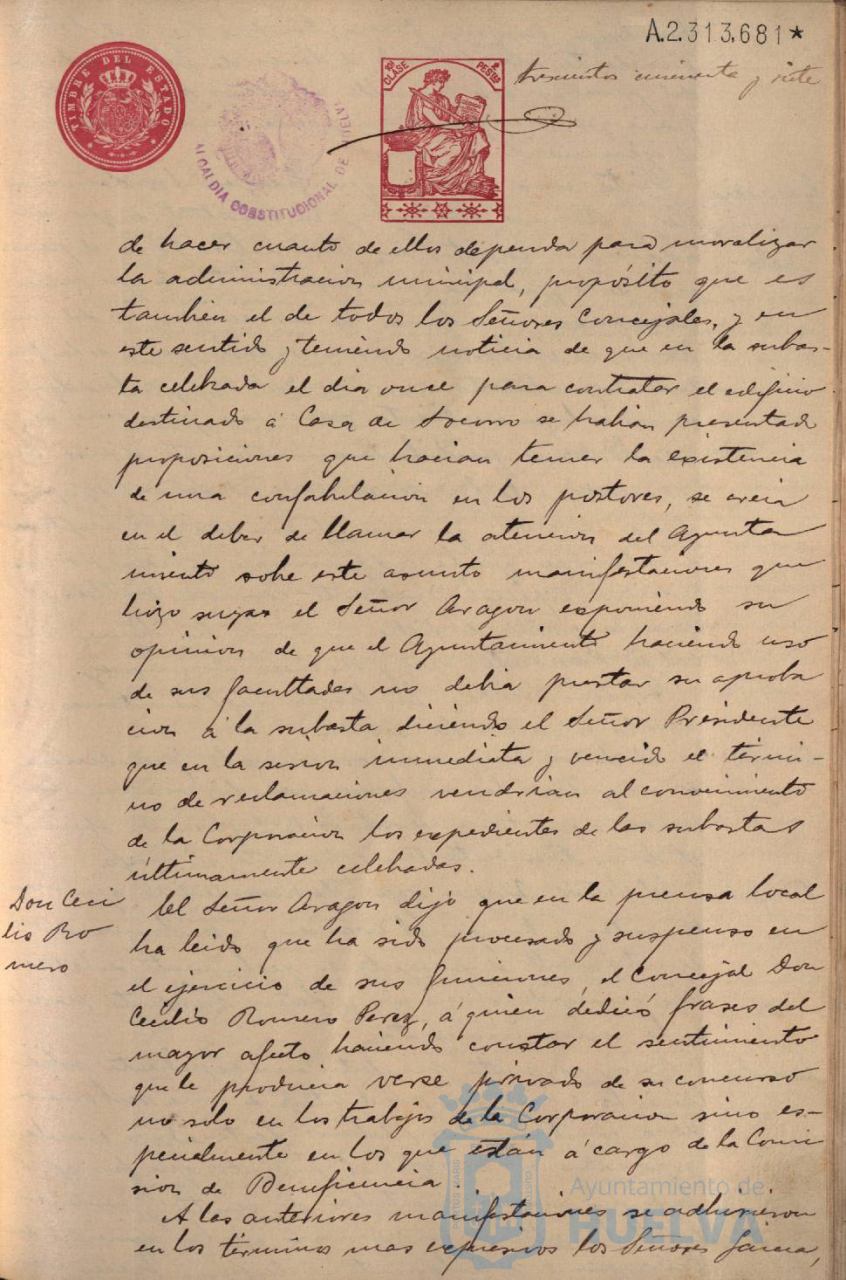 A.2.313.681*
TIMBRE DEL ESTADO
ALCALDIA CONSTITUCIONAL DE HUELVA
10ª CLASE
2 PESETAS
trescientos cincuenta y siete
de hacer cuanto de ellos dependa para moralizar
la administracion municipal, propósito que es
tambien el de todos los Señores Concejales, y en
este sentido y teniendo noticia de que en la subas-
ta celebrada el dia once para contratar el edificio
destinado á Casa de Socorro se habian presentado
proposiciones que hacian temer la existencia
de una confabulacion en los postores, se creia
en el deber de llamar la atencion del Ayunta
miento sobre este asunto manifestaciones que
hizo suyas el Señor Aragon exponiendo su
opinion de que el Ayuntamiento haciendo uso
de sus facultades no debia prestar su aproba
cion á la subasta, diciendo el Señor Presidente
que en la sesion inmediata y vencido el térmi-
no de reclamaciones vendrian al conocimiento
de la Corporacion los expedientes de las subastas
últimamente celebradas.
Don Ceci
lio Ro
mero
El Señor Aragon dijo que en la prensa local
ha leido que ha sido procesado y suspenso en
el ejercicio de sus funciones, el Concejal Don
Cecilio Romero Perez, á quien dedicó frases del
mayor afecto haciendo constar el sentimiento
que le producia verse privado de su concurso
no solo en los trabajos de la Corporacion sino es-
pecialmente en los que están á cargo de la Comi
sion de Beneficencia.
A las anteriores manifestaciones se adhirieron
en los términos mas expresivos los Señores Garcia,
Ayuntamiento de
HUELVA